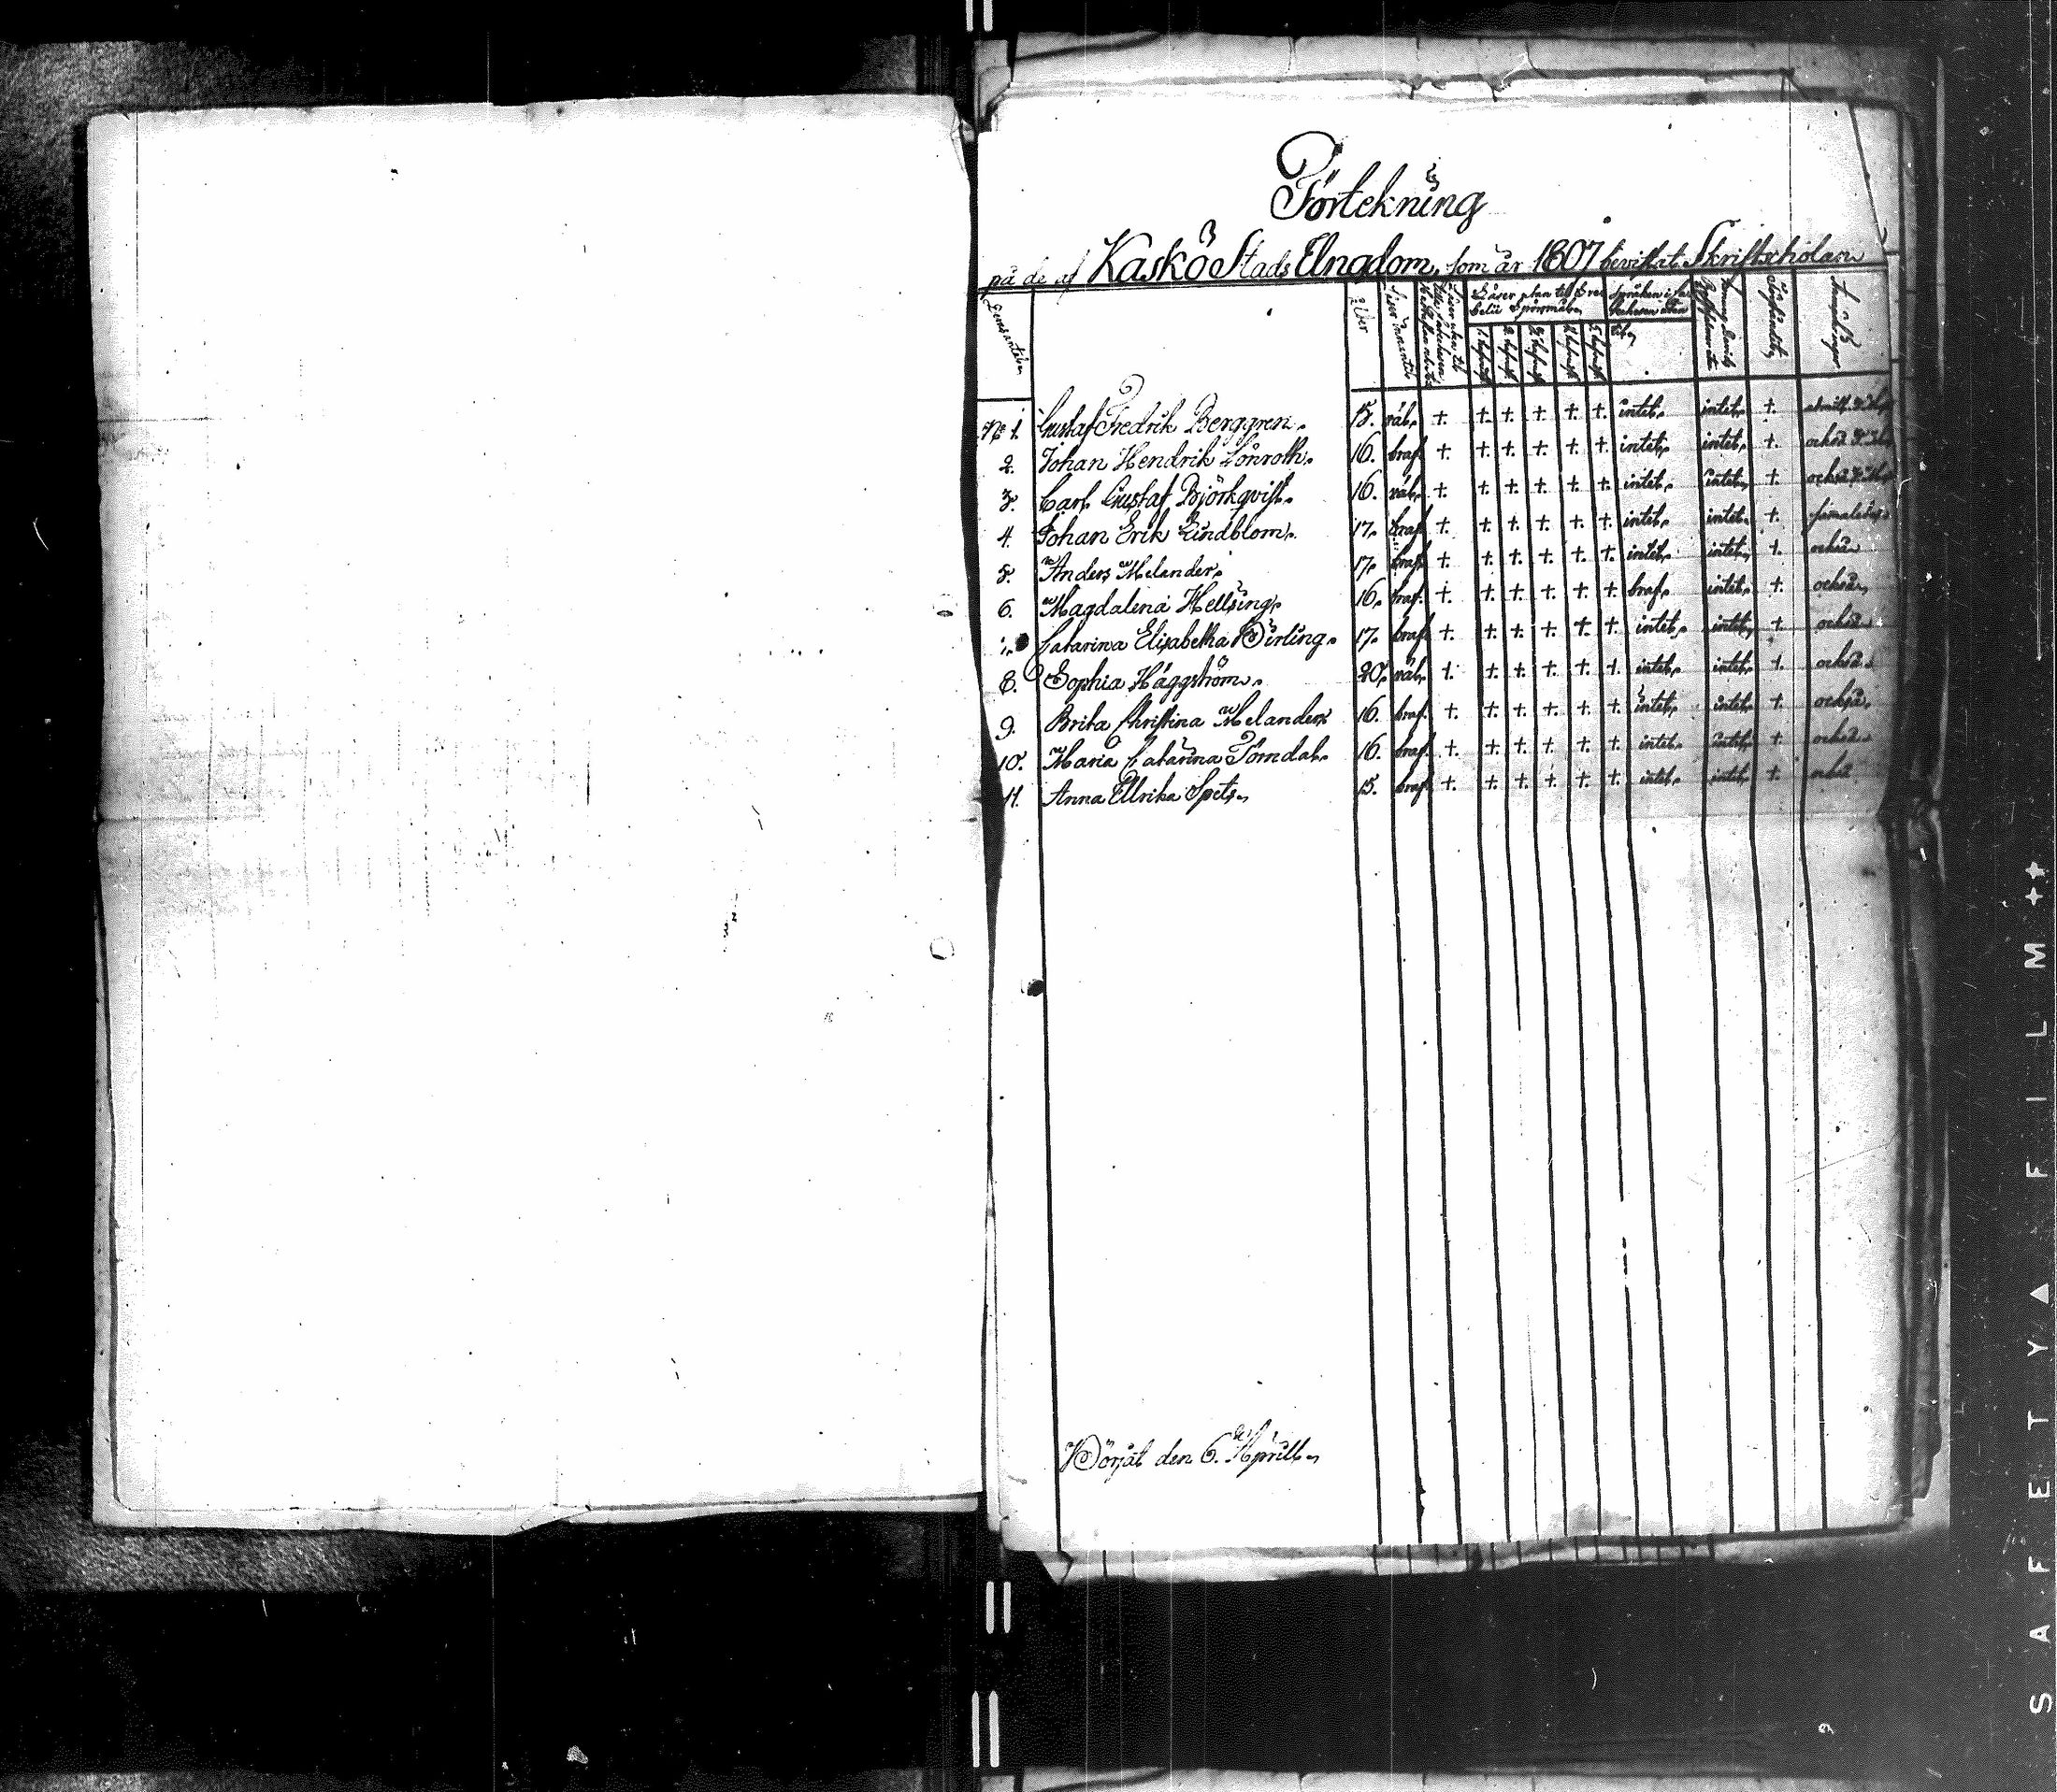 Förtekning
på de af Kaskö Stads Ungdom, som år 1807 bevistat Skriftscholan
Ålder Läser innantil
1. 2. 3. 4. 5.
No 1. Gustaf Fredrik Berggren. 15. väl. +. +. +. +. +. +. intet. intet. +.
2. Johan Hendrik Lönroth. 16. braf. +. +. +. +. +. +. intet. intet. +. också
3. Carl Gustaf Björkqvist. 16. väl. +. +. +. +. +. +. intet. intet. +. också
4. Johan Erik Lindblom. 17. braf +. +. +. +. +. +. intet. intet. +.
5. Anders Melander. 17. braf +. +. +. +. +. +. intet. intet. +. också
6. Magdalena Hellsing. 16. braf. +. +. +. +. +. +. braf. intet. +. också
Catarina Elisabetha Dirling. 17. braf +. +. +. +. +. +. intet. intet. +. också
8. Sophia Häggström. 20. väl. +. +. +. +. +. +. intet. intet. +. också.
9. Brita Christina Melander 16. braf. +. +. +. +. +. +. intet. intet. +. också.
10. Maria Catarina Törndal. 16. braf. +. +. +. +. +. +. intet. intet. +. också.
11. Anna Ulrika Spets. 15. braf +. +. +. +. +. +. intet. intet. +. också
Börjat den 6. Aprill.
SAFETY▲FILM++